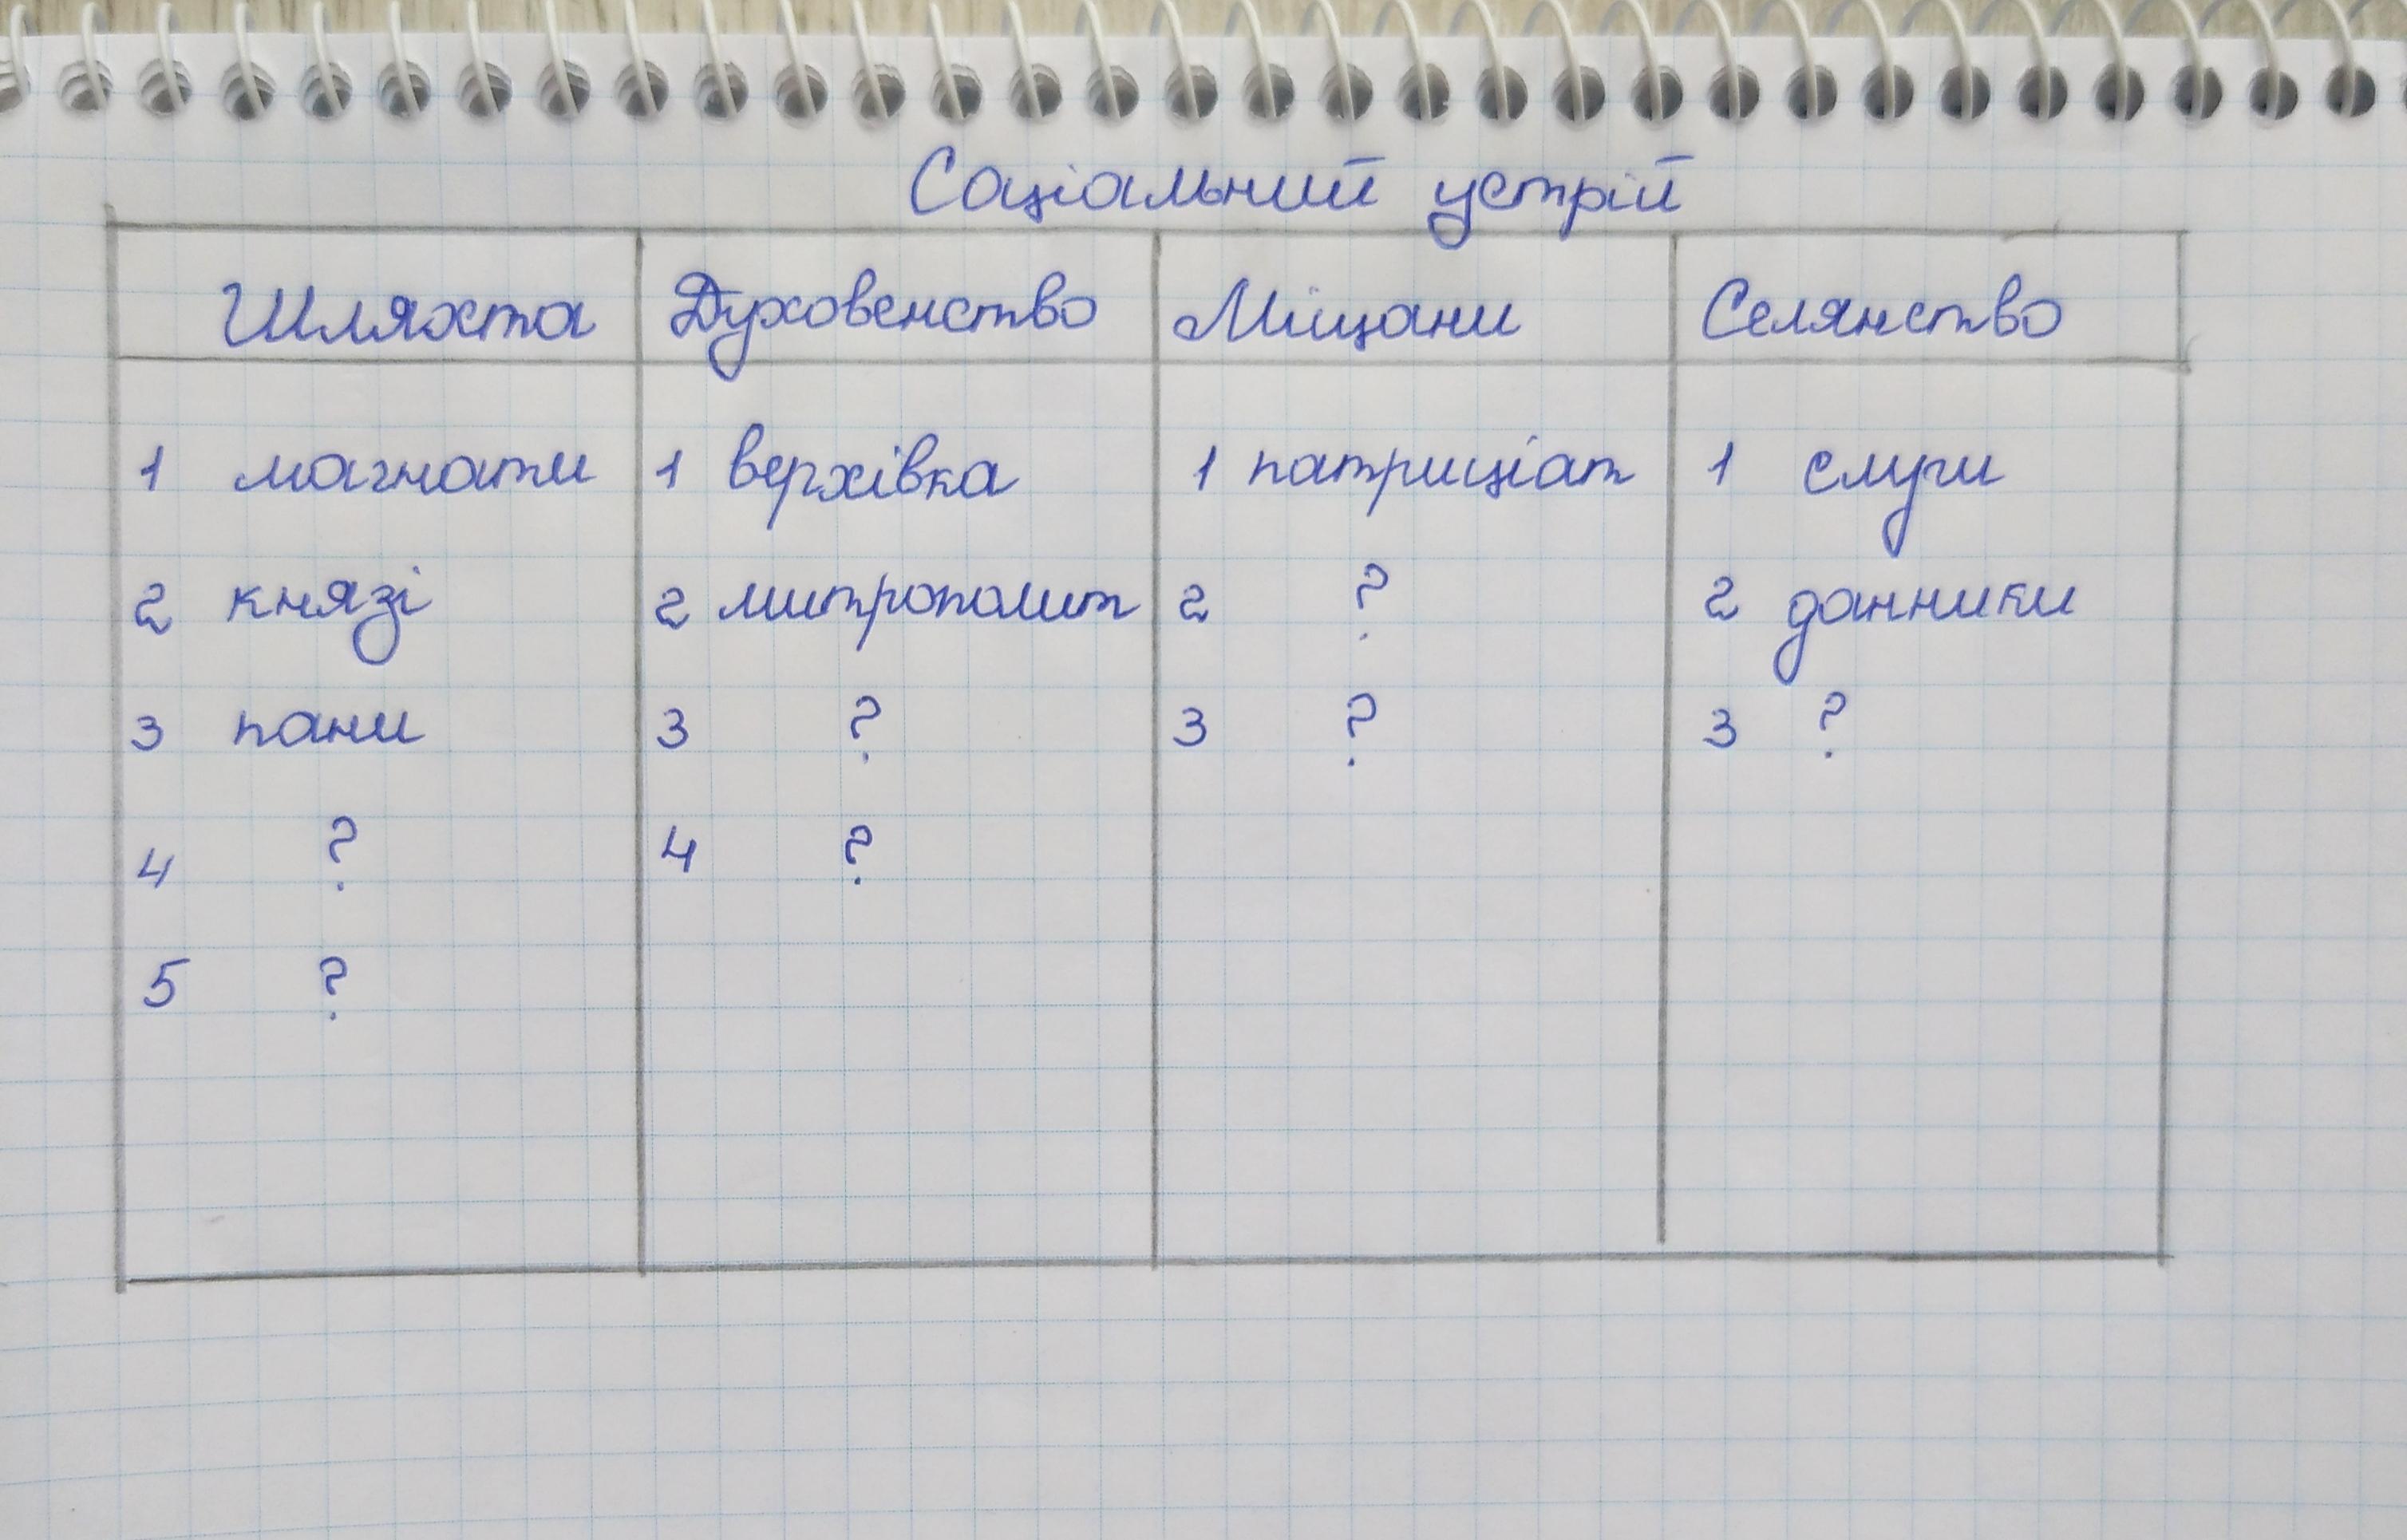 Соціальний устрій
Шляхта Духовенство Міщани Селянство
1 магнати 1 верхівка 1 патриціат 1 слуги
2 князі 2 митрополит 2 ? 2 данники
3 пани 3 ? 3 ? 3 ?
4 ? 4 ?
5 ?